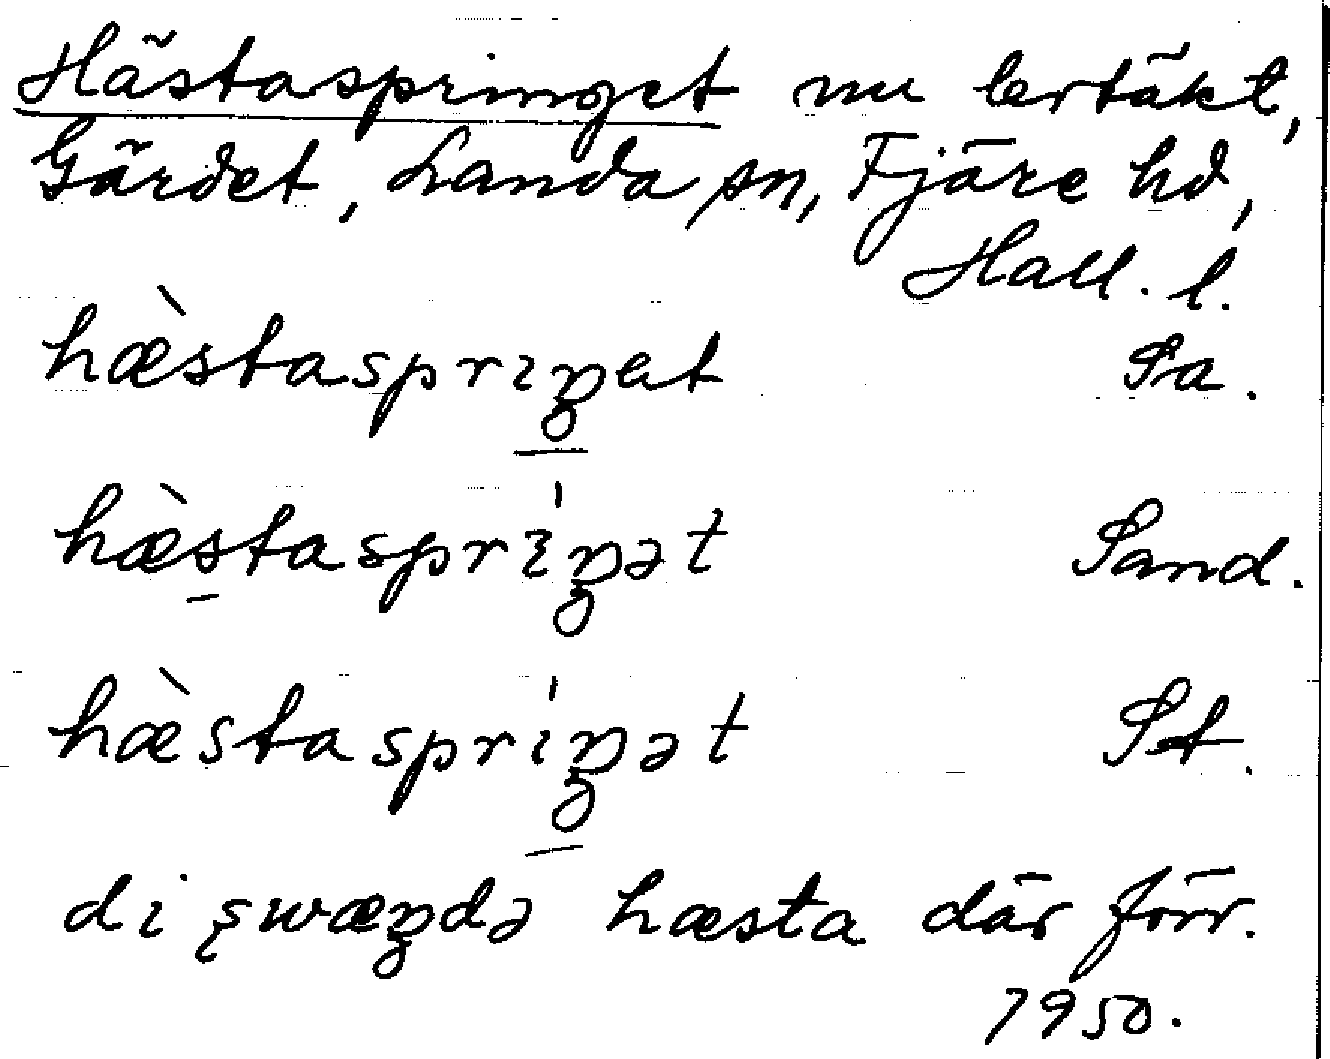 Hästaspringet nu lertäkt,
Gärdet, Landa sn, Fjäre hd,
Hall. l.
hæ̀staspriŋet Sa.
hæ̀staspríŋət Sand.
hæ̀staspríŋət St.
di swæŋdə hæsta där förr.
1950.